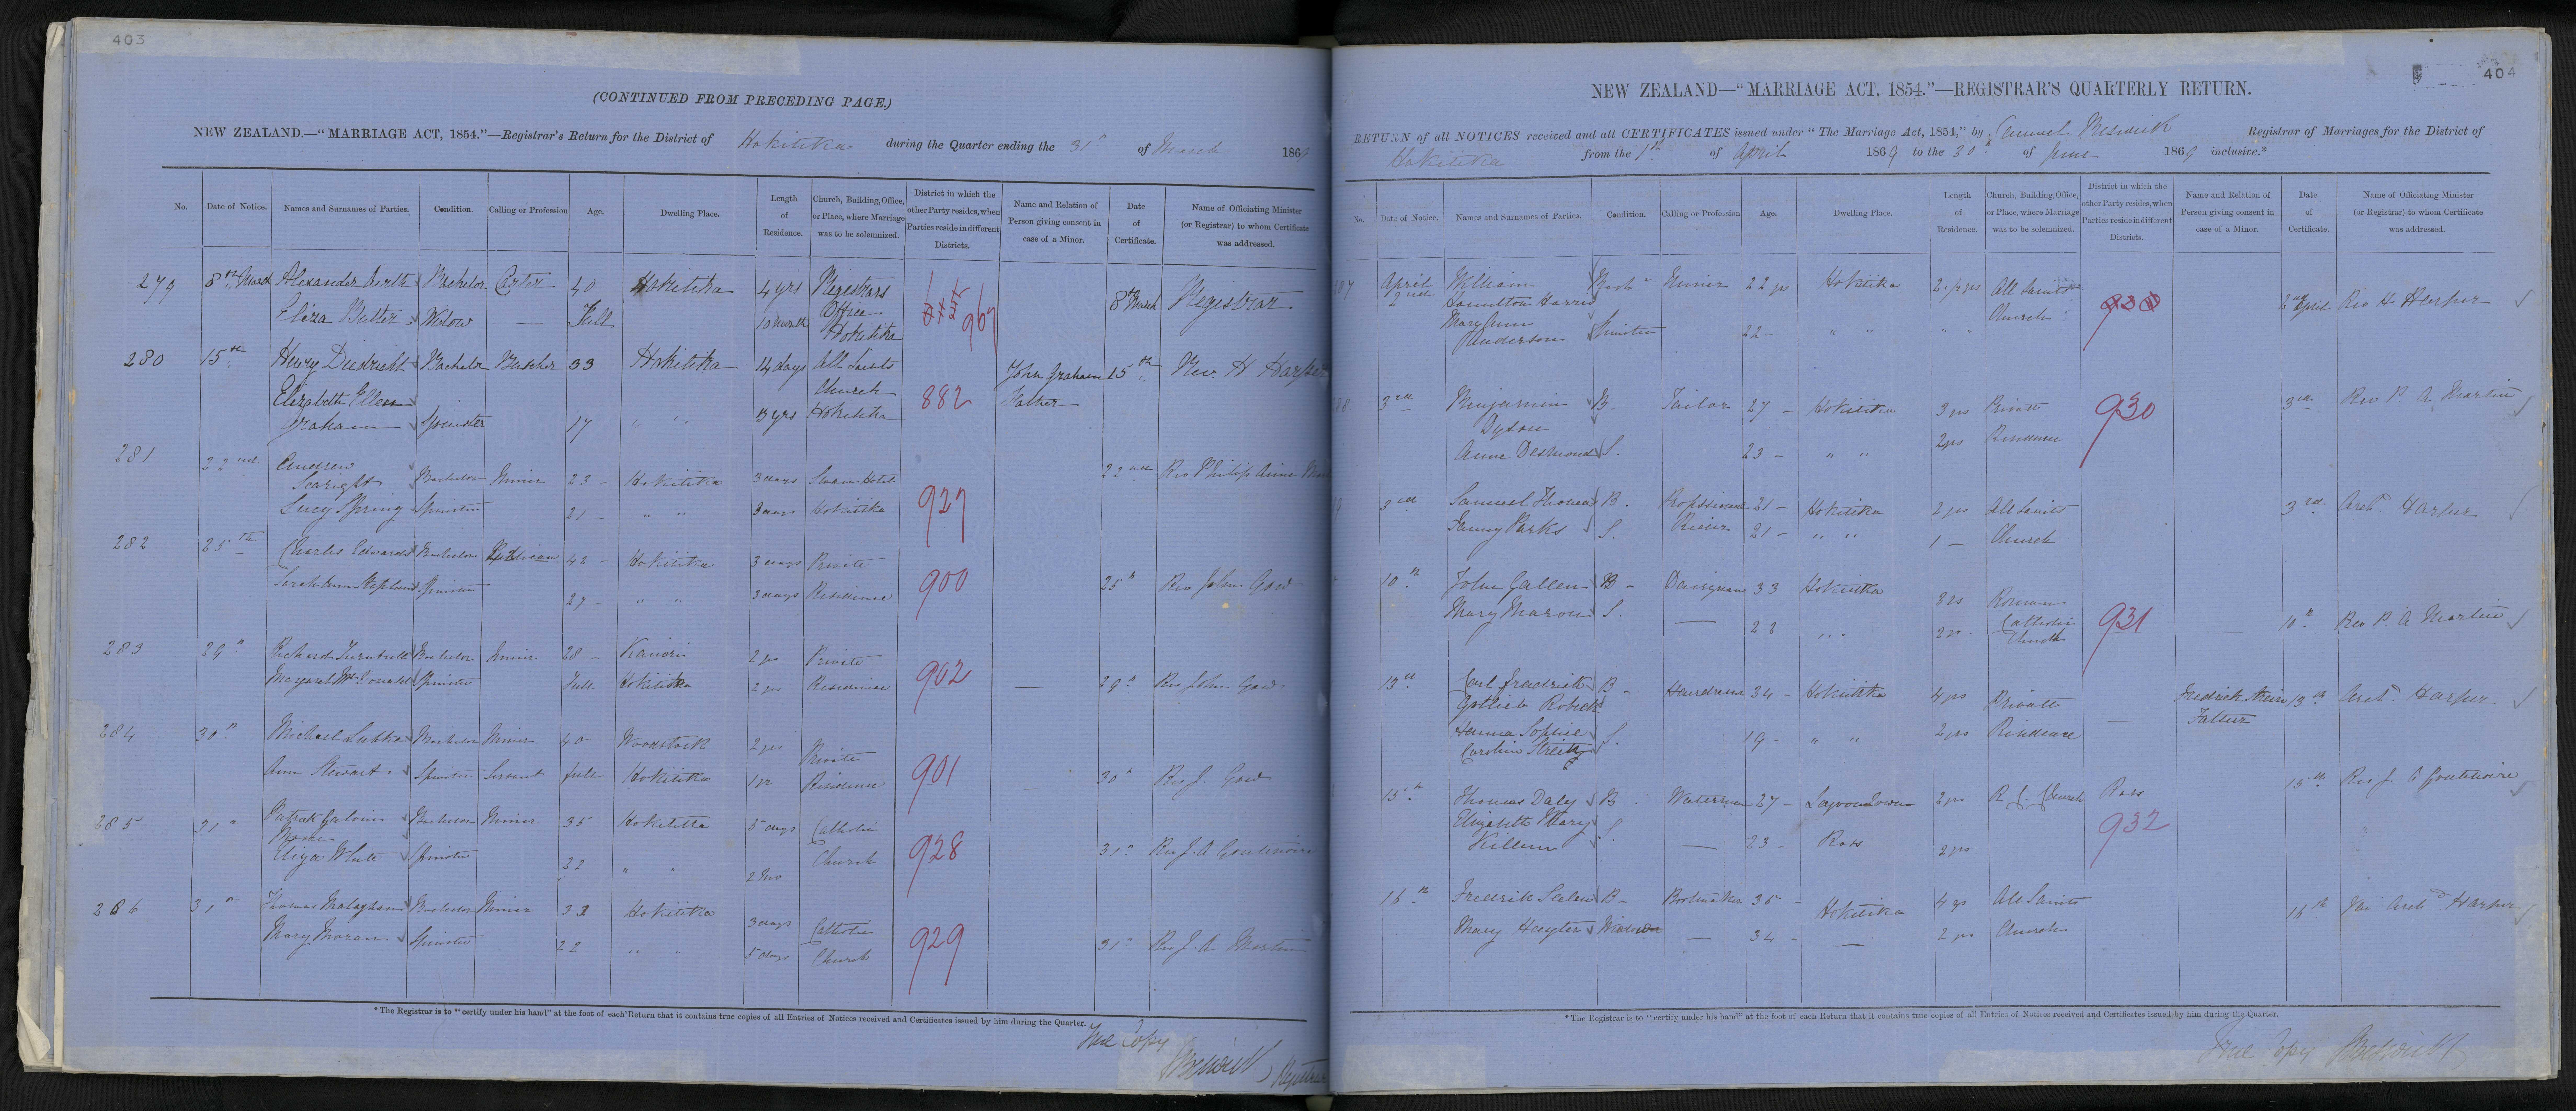 403
(CONTINUED FROM PRECEDING PAGE.)
NEW ZEALAND.—“MARRIAGE ACT, 1854.”—Registrar's Return for the District of Hokitika during the Quarter ending the 31st of March 1869
No. Date of Notice. Names and Surnames of Parties. Condition. Calling or Profession Age. Dwelling Place. Length of Residence. Church, Building, Office, or Place, where Marriage was to be solemnized. District in which the other Party resides, when Parties reside in different Districts. Name and Relation of Person giving consent in case of a Minor. Date of Certificate. Name of Officiating Minister (or Registrar) to whom Certificate was addressed.
279 8th March Alexander Bachelor Carter 40 Hokitika 4 yrs Registrars 8th March Registrar
Eliza Butler Widow — Full 10 month Office Hokitika 967
280 15th Henry Diedricht Bachelor Butcher 33 Hokitika 14 days All Saints John Graham 15th Rev. H Harper
Elizabeth Ellen Church 882 Father
Graham Spinster 17 " " 3 yrs Hokitika
281 22nd Andrew
Searight Bachelor Miner 23 - Hokitika 3 days Swan Hotel 22nd Rev Philip
Lucy Spring Spinster 21 - " " 3 days Hokitika 927
282 25th Charles Edwards Bachelor Publican 42 - Hokitika 3 days Private
Sarah Ann Spinster 27 - " " 3 days Residence 900 25th Rev John Gow
283 29th Richard Turnbull Bachelor Miner 28 - Kanieri 2 yrs Private
Margaret McDonald Spinster Full Hokitika 2 yrs Residence 902 — 29th Rev John Gow
284 30th Michael Bachelor Miner 40 Woodstock 2 yrs Private
Ann Stewart Spinster Servant full Hokitika 1 yr Residence 901 — 30th Rev J. Gow
285 31st Patrick Bachelor Miner 35 Hokitika 5 days Catholic
Moore
Eliza White Spinster 22 " " Church 928 31st Rev J. A
286 31st Thomas Bachelor Miner 32 Hokitika 3 days Catholic
Mary Moran Spinster 22 " " 5 days Church 929 31st Rev Martin
*The Registrar is to “certify under his hand” at the foot of each Return that it contains true copies of all Entries of Notices received and Certificates issued by him during the Quarter.
True Copy
Registrar
404
NEW ZEALAND—“MARRIAGE ACT, 1854.”—REGISTRAR'S QUARTERLY RETURN.
RETURN of all NOTICES received and all CERTIFICATES issued under “The Marriage Act, 1854,” by Samuel Beswick Registrar of Marriages for the District of
Hokitika from the 1st of April 1869 to the 30th of June 1869 inclusive.*
No. Date of Notice. Names and Surnames of Parties. Condition. Calling or Profession Age. Dwelling Place. Length of Residence. Church, Building, Office, or Place, where Marriage was to be solemnized. District in which the other Party resides, when Parties reside in different Districts. Name and Relation of Person giving consent in case of a Minor. Date of Certificate. Name of Officiating Minister (or Registrar) to whom Certificate was addressed.
April 2nd William Bach Miner 22 Hokitika All Saints 930 April Rev H Harper
Hamilton Harris Church
Mary Ann
Anderson Spinster 22 - " " " "
3rd Benjamin B. Tailor 27 - Hokitika 3 yrs Private 930 3rd Rev P. A Martin
Dyson
Anne Desmond S. 23 - " " 2 yrs Residence
3rd Samuel Thomas B. 21 - Hokitika 2 yrs All Saints 3rd Arch. Harper
Fanny Parks S. 21 - " " 1 — Church
10th John Gallen B - 33 Hokitika Roman
Mary S. — 22 " " Catholic Church 931 10th Rev P A Martin
13th Carl Fredrick B - 34 - Hokitika 4 yrs Private Fredrick 13th Arch. Harper
Gottlieb Father
Sophie S. 19 - " " 2 yrs Residence
15th Thomas Daly B. Waterman 27 - 2 yrs R. C. Church Ross 15th Rev J.
Elizabeth Mary S. — 23 - Ross 2 yrs 932
16th Fredrik B - Bootmaker 35 - Hokitika 4 yrs All Saints 16th Arch Harper
Mary Heyter Widow — 34 - — 2 yrs Church
*The Registrar is to “certify under his hand” at the foot of each Return that it contains true copies of all Entries of Notices received and Certificates issued by him during the Quarter.
True Copy